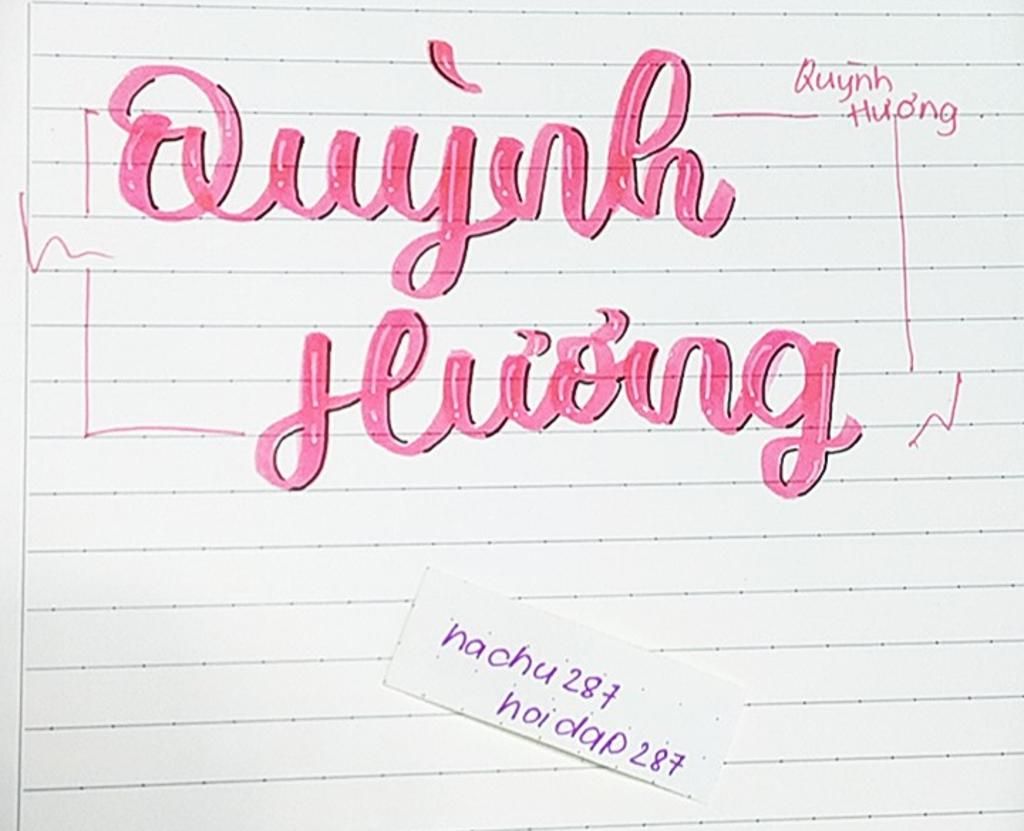 Quỳnh
Hương
Quỳnh
Hương
nachu287
hoidap287